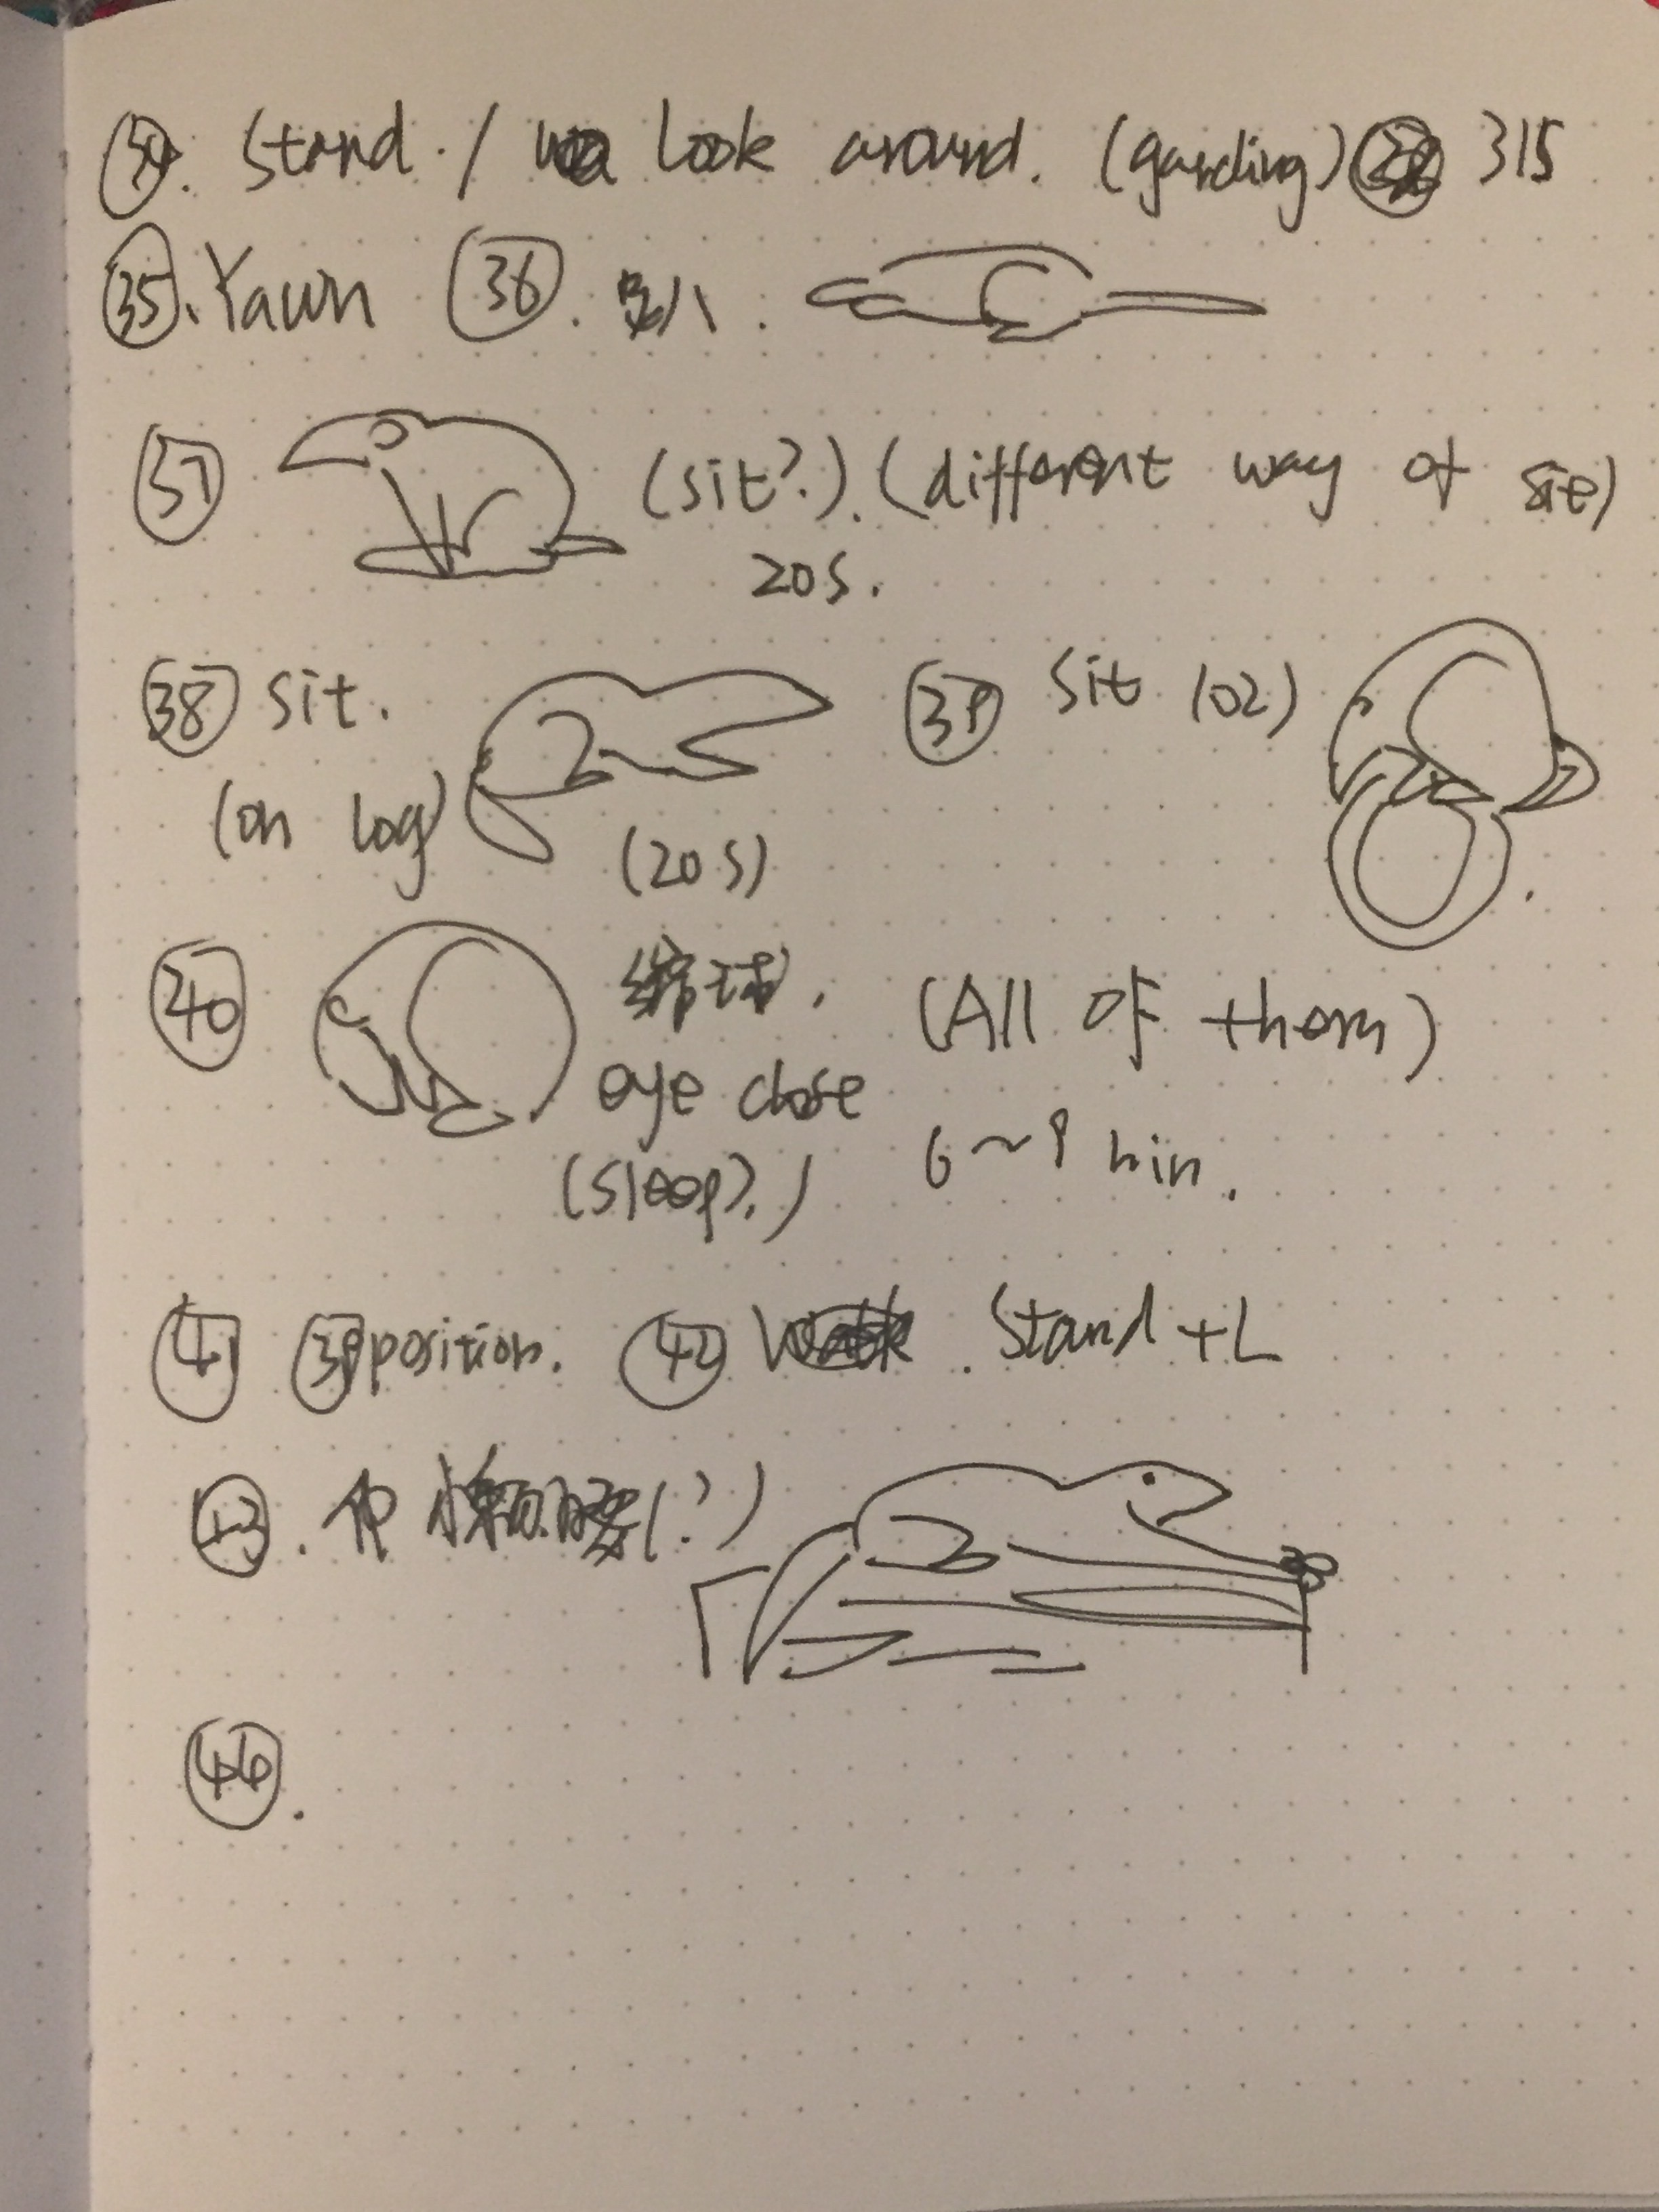 34. Stand. / Look around. (garding) 315
35. Yawn 36.
37 (sit?). (different way of sit)
20s.
38 sit. 39 Sit (02)
(on log)
(20s)
40 缩球. (All of them)
eye close
6~9 min.
(Sleep?.)
41 39 position. 42 . Stand + L
43. (?)
44.